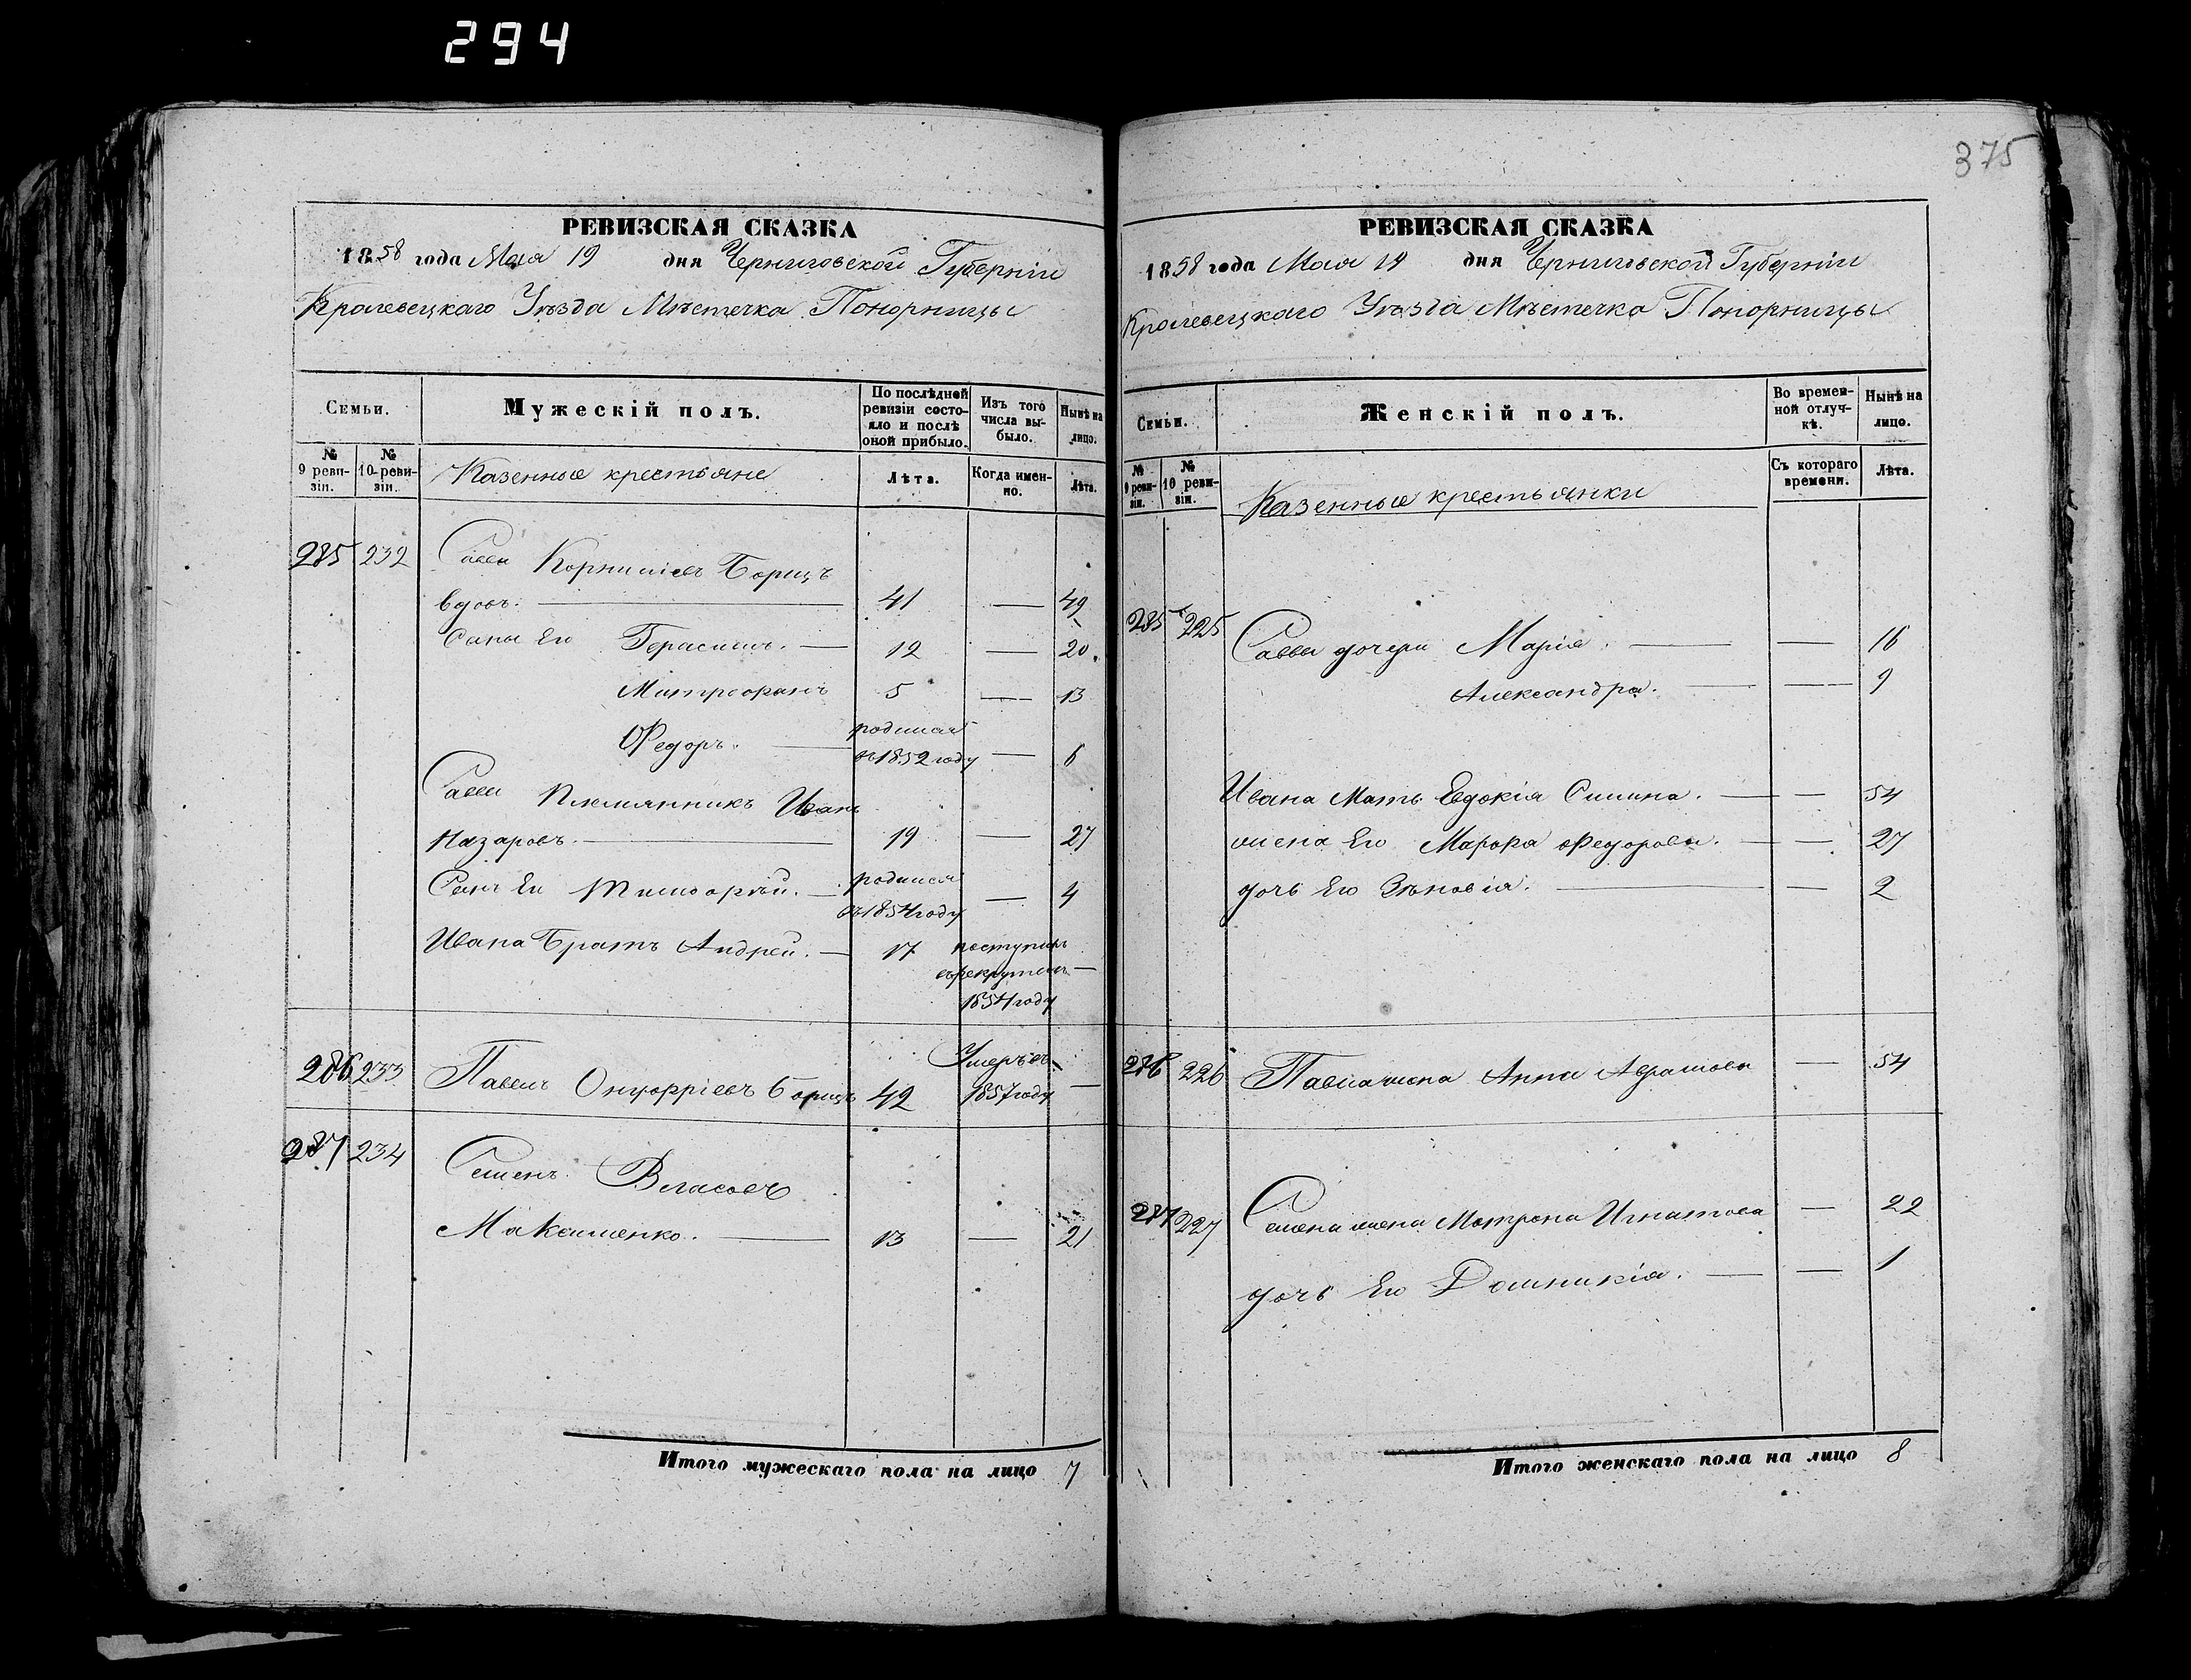 294
375
РЕВИЗСКАЯ СКАЗКА
1858 года Мая 19 дня Черниговской Губерніи
Кролевецкаго Уѣзда Мѣстечка Понорницы
Семьи.
Мужескій полъ.
По послѣдней ревизіи состояло и послѣ оной прибыло.
Изъ того числа выбыло.
Нынѣ на лицо.
№ 9 ревизіи.
№ 10 ревизіи.
Казенные крестьяне
Лѣта.
Когда именно.
Лѣта.
285 232 Савва Корниліевъ Борщъ
вдовъ. — 41 — 49
Сыны Его Герасимъ. — 12 — 20.
Митрофанъ 5 — 13
Федоръ. — родился
въ 1852 году — 6
Саввы Племянникъ Иванъ
Назаровъ. — 19 — 27
Сынъ Его Тимофей. — родился
въ 1854 году — 4
Ивана Братъ Андрей. — 17 поступилъ
въ рекруты —
1854 году
286 233 Павелъ Онуфріевъ Борщъ 42 Умеръ въ
1857 году —
287 234 Семенъ Власовъ
Максименко. — 13 — 21
Итого мужескаго пола на лицо 7
РЕВИЗСКАЯ СКАЗКА
1858 года Мая 19 дня Черниговской Губерніи
Кролевецкаго Уѣзда Мѣстечка Понорницы
Семьи.
Женскій полъ.
Во временной отлучкѣ.
Нынѣ на лицо.
№ 9 ревизіи.
№ 10 ревизіи.
Казенные крестьянки
Съ котораго времени.
Лѣта.
285 225 Саввы дочери Марія. — — 16
Александра. — — 9
Ивана Мать Евдокія Симина. — — 54
жена Его Марфа Федорова. — — 27
дочь Его Зѣновія. — — 2
286 226 Павла жена Анна Абрамова — 54
287 227 Семена жена Матрона Игнатова — 22
дочь Его Домникія. — — 1
Итого женскаго пола на лицо 8